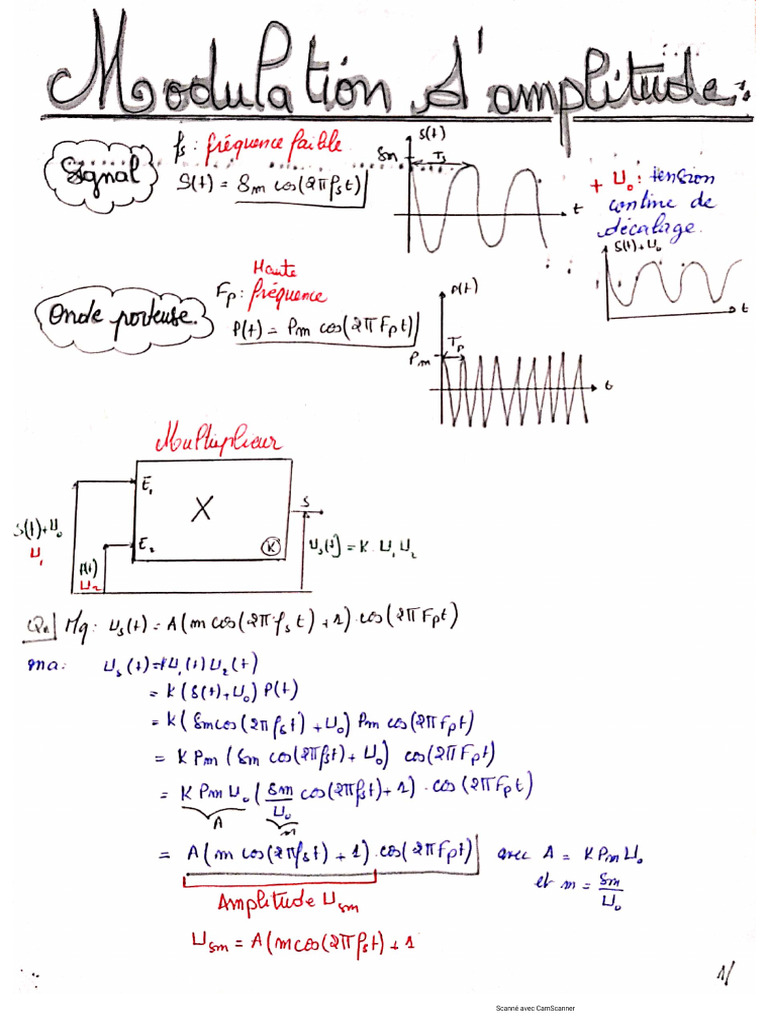 Modulation d'amplitude.
fs : fréquence faible
Signal
S(t) = Sm cos(2πfst)
S(t)
Sm
Ts
t
+ U0 : tension
contine de
décalage.
S(t)+U0
t
Onde porteuse.
Haute
Fp : fréquence
P(t) = Pm cos(2πFpt)
P(t)
Pm
Tp
t
Multiplieur
E1
X
S
S(t)+U0
U1
E2
K
P(t)
U2
Us(t) = K.U1U2
Mq: Us(t) = A(m cos(2πfst)+1).cos(2πFpt)
ona: Us(t)=KU1(t)U2(t)
= K(S(t)+U0)P(t)
= K(Smcos(2πfst)+U0) Pm cos(2πFpt)
= K Pm (Sm cos(2πfst)+U0) cos(2πFpt)
= K Pm U0 (Sm/U0 cos(2πfst)+1).cos(2πFpt)
A
m
= A(m cos(2πfst)+1).cos(2πFpt) avec A = K Pm U0
et m = Sm/U0
Amplitude Usm
Usm = A(mcos(2πfst)+1
1/
Scanné avec CamScanner